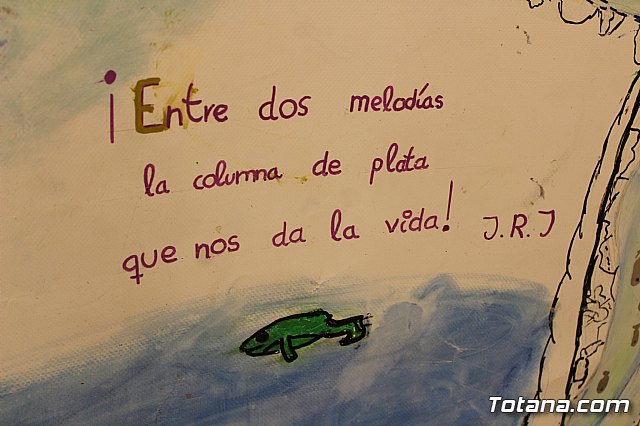 ¡Entre dos melodías
la columna de plata
que nos da la vida! J.R.J
www.Totana.com